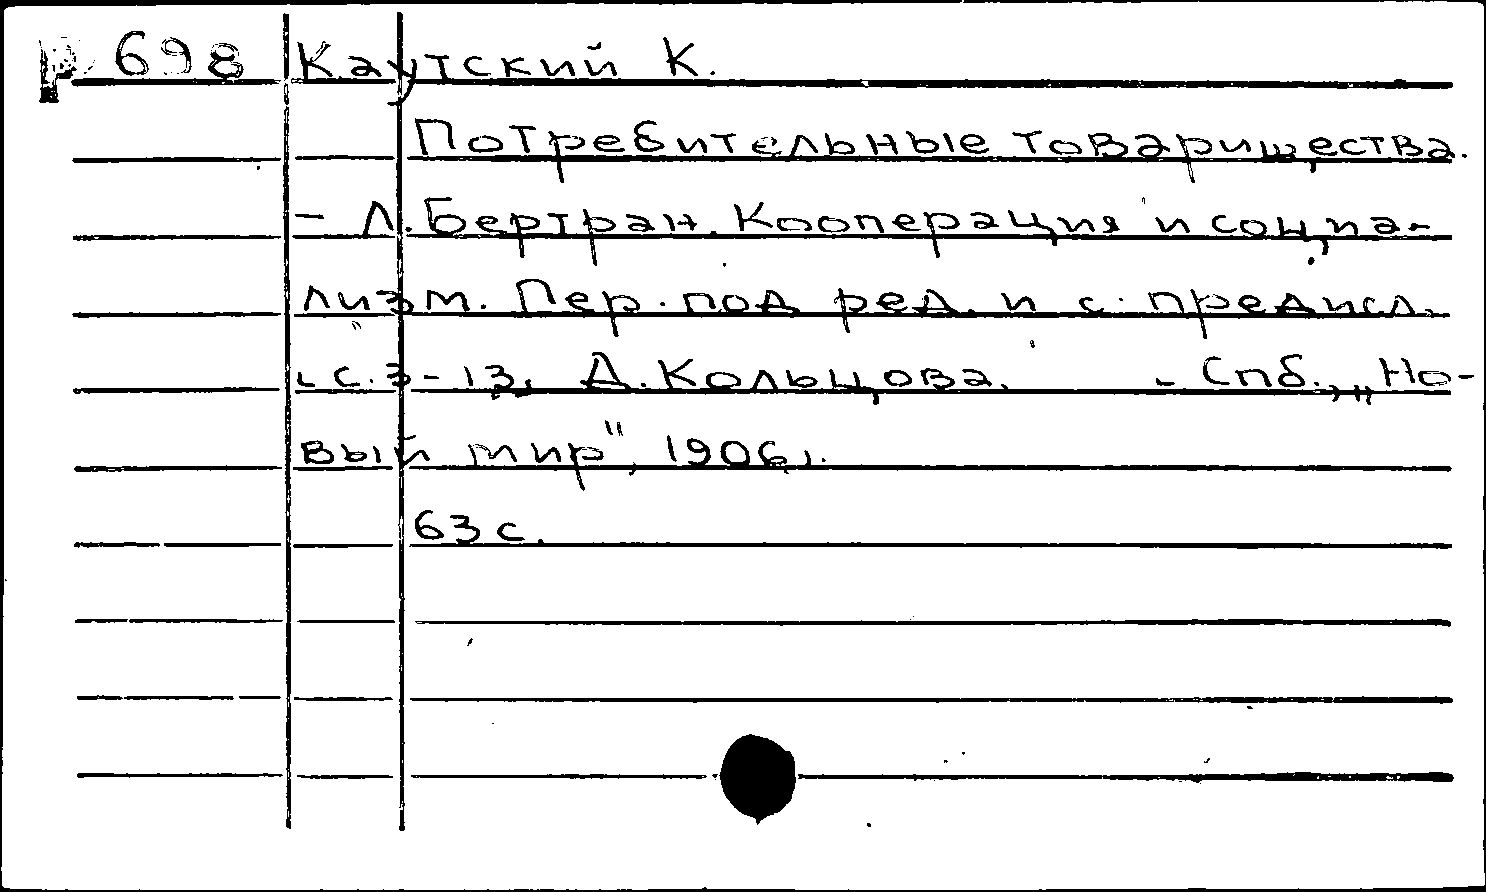 Р 698 Каутский К.
Потребительные товарищества.
- Л. Бертран. Кооперация и социа-
лизм. Пер. под ред. и с предисл.
[с. 3-13] Д. Кольцова. - Спб., „Но-
вый мир", 1906.
63 с.